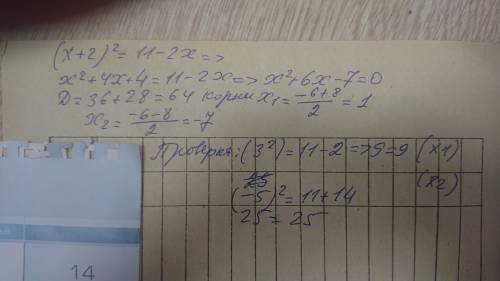 (x+2)² = 11-2x =>
x²+4x+4=11-2x=> x²+6x-7=0
D=36+28=64 корни x₁=\frac{-6+8}{2}=1
x₂=\frac{-6-8}{2}=-7
Проверка: (3²)=11-2=>9=9 (x1)
(-5)²=11+14 (x2)
25=25
14